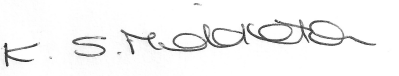 K. S. Middleton